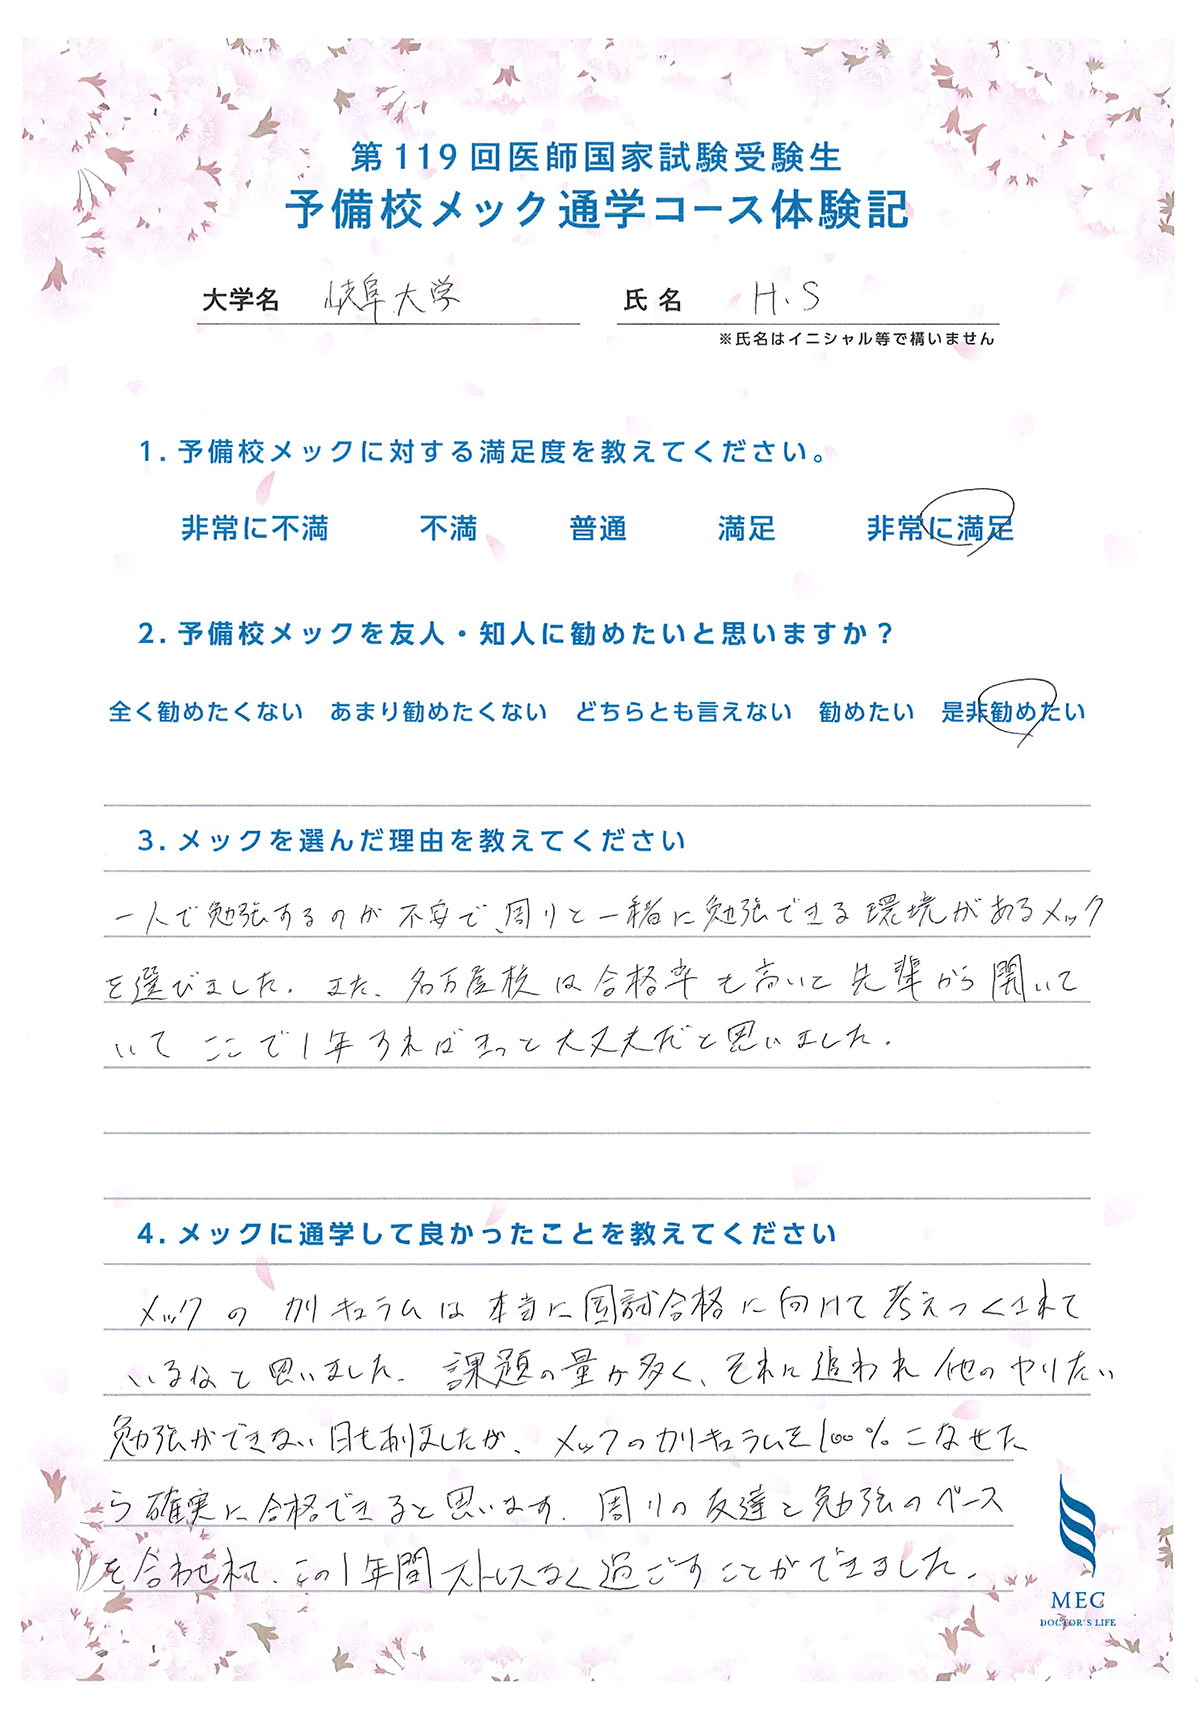 第119回医師国家試験受験生
予備校メック通学コース体験記
大学名 岐阜大学 氏名 H.S
※氏名はイニシャル等で構いません
1. 予備校メックに対する満足度を教えてください。
非常に不満 不満 普通 満足 非常に満足
2. 予備校メックを友人・知人に勧めたいと思いますか？
全く勧めたくない あまり勧めたくない どちらとも言えない 勧めたい 是非勧めたい
3. メックを選んだ理由を教えてください
一人で勉強するのが不安で、周りと一緒に勉強できる環境があるメック
を選びました。また、名古屋校は合格率も高いと先輩から聞いて
いてここで1年すればきっと大丈夫だと思いました。
4. メックに通学して良かったことを教えてください
メックのカリキュラムは本当に国試合格に向けて考えつくされて
いるなと思いました。課題の量が多く、それに追われ他のやりたい
勉強ができない日もありましたが、メックのカリキュラムを100%こなせた
ら確実に合格できると思います。周りの友達と勉強のペース
を合わせれて、この1年間ストレスなく過ごすことができました。
MEC
DOCTOR'S LIFE